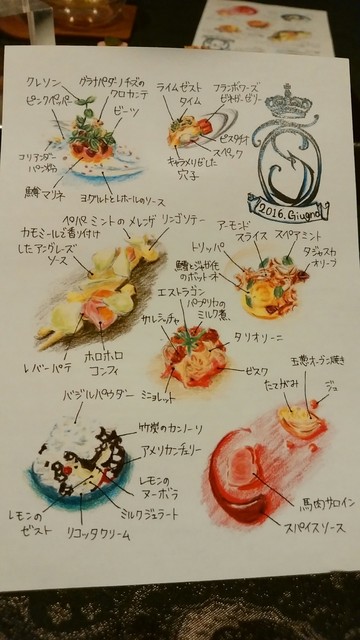 クレソン
グラナパダーノチーズの
クロカンテ
ピンクペッパー
ビーツ
コリアンダー
パン粉
鱒マリネ
ヨーグルトとレホールのソース
ライムゼスト
タイム
フランボワーズ
ビネガーゼリー
ピスタチオ
スペック
キャラメリゼした
穴子
2016. Giugno
ペパーミントのメレンゲ
リンゴソテー
カモミールで香り付け
したアングレーズ
ソース
レバーパテ
ホロホロ
コンフィ
アーモンド
スライス
スペアミント
トリッパ
タジャスカ
オリーブ
鱈とじゃが芋
のポッポーネ
エストラゴン
パプリカの
ミルク煮
サルシッチャ
タリオリーニ
ジョレット
ビスク
玉葱オーブン焼き
たてがみ
ジュ
馬肉サロイン
スパイスソース
バジルパウダー
竹炭のカンノーリ
アメリカンチェリー
レモンの
ヌーボラ
ミルクジェラート
リコッタクリーム
レモンの
ゼスト